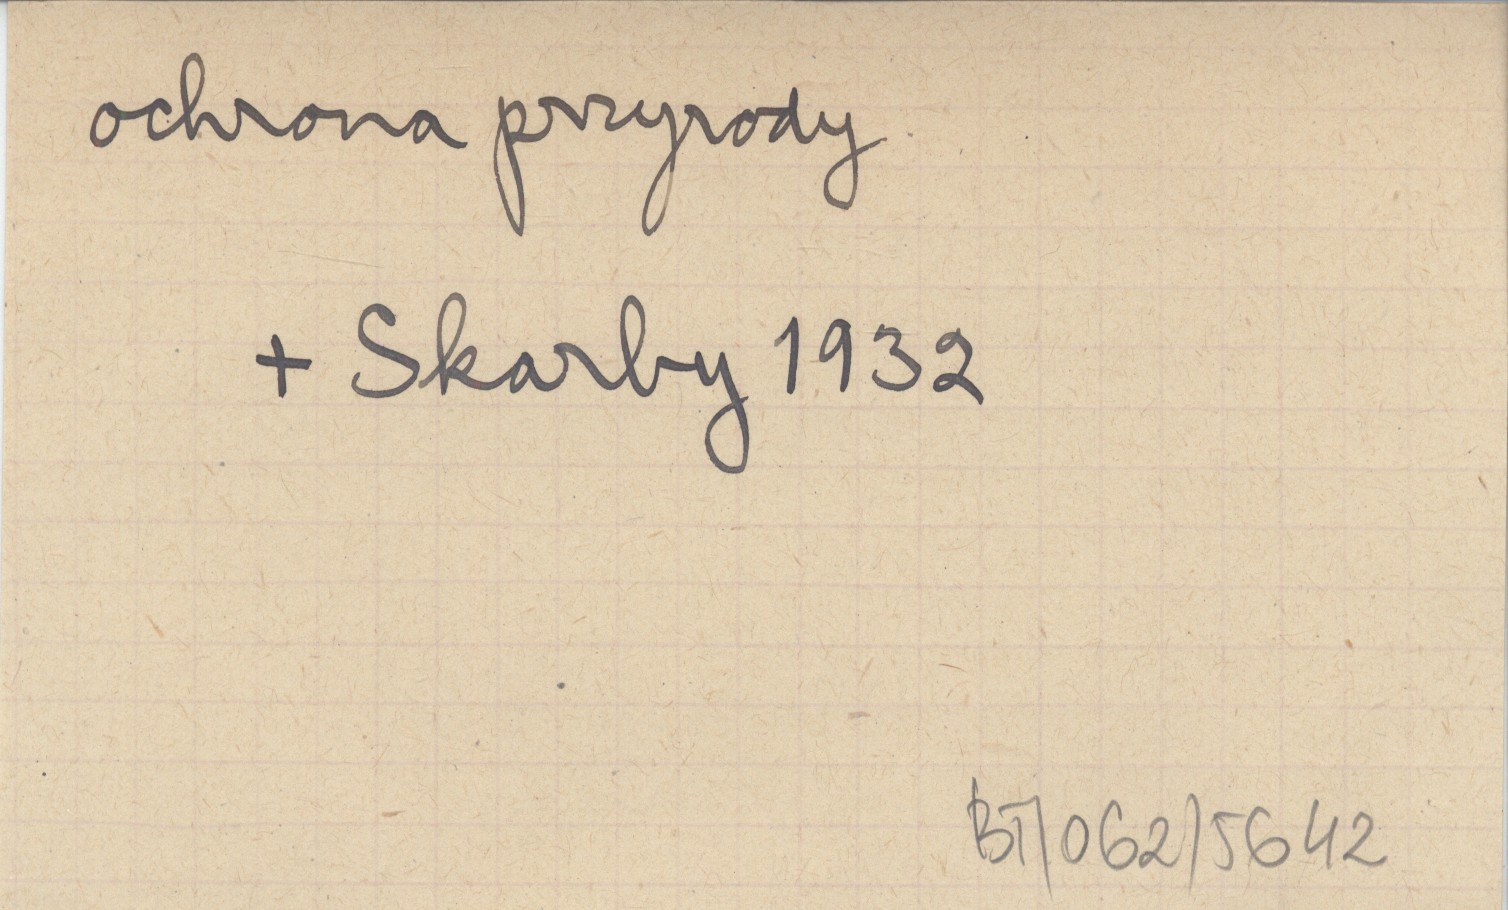 ochrona przyrody
+ Skarby 1932
BT/062/5642